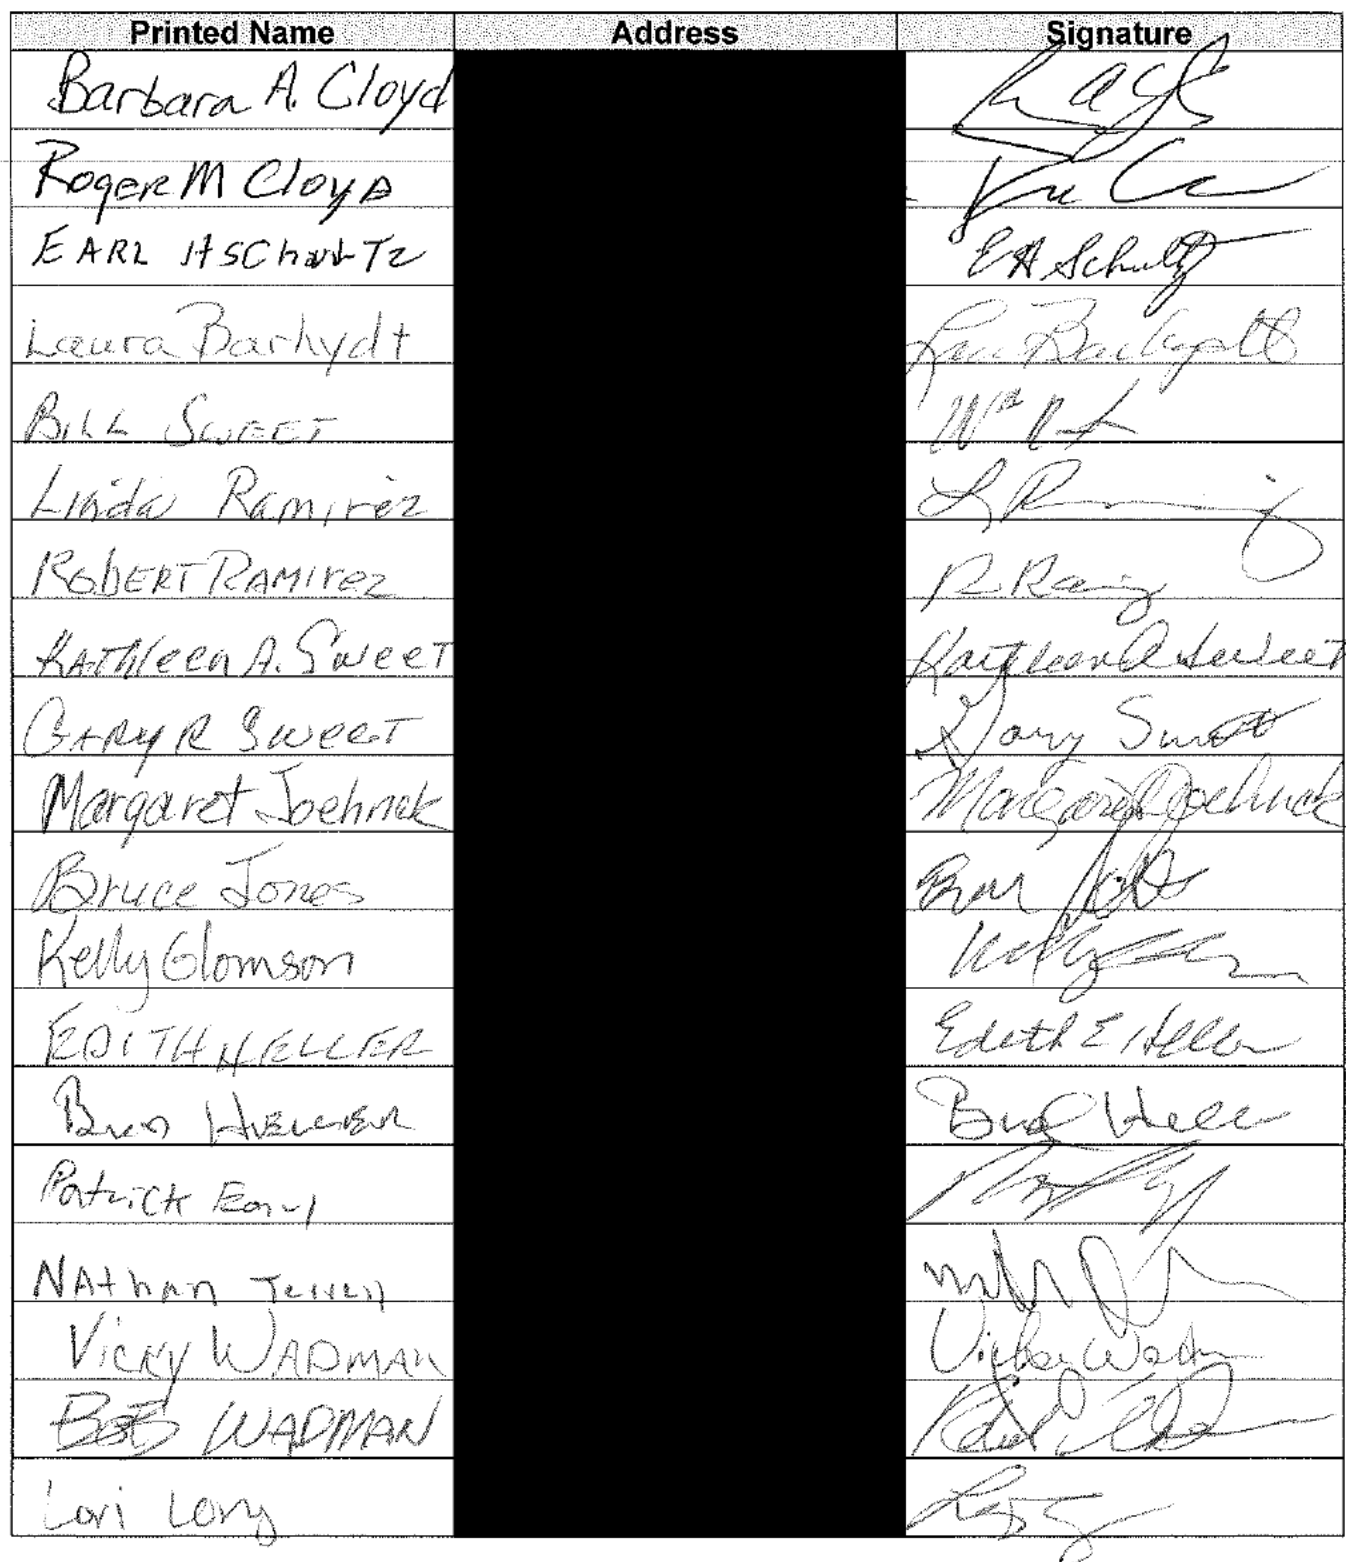 Printed Name Address Signature
Barbara A. Cloyd
Roger M Cloyd
EARL H SChultz E H Schultz
Laura Barhydt Barhydt
BILL SWEET Wm
Linda Ramirez L R
ROBERT RAMIREZ R.
KAThleen A. SweeT Kathleen A Sweet
GARY R SweeT Gary Sweet
Margaret Joehnck Margaret Joehnck
Bruce Jones
Kelly Glomson Kelly
EDITH HELLER Edith E Heller
BRAD HELLER Brad Heller
Patrick Earl
NAthan
VICKY WADMAN Vicky Wadman
BOB WADMAN
Lori Long